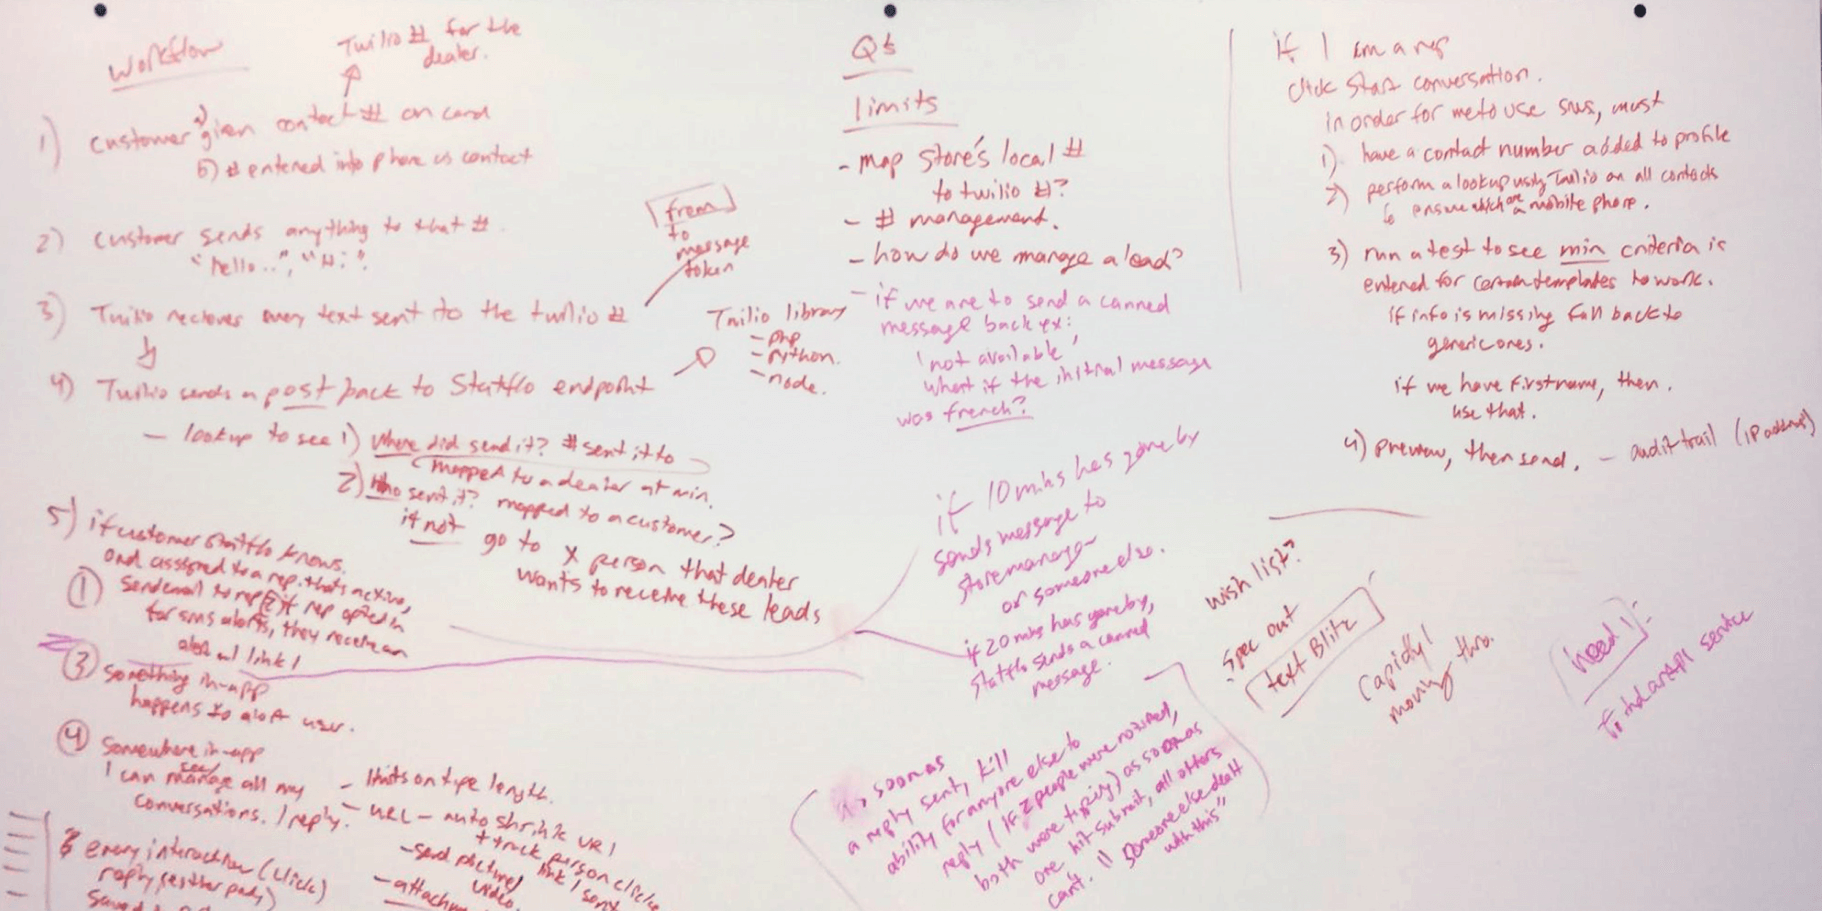 Workflow
Twilio # for the
dealer.
1) customer a) given contact # on card
b) # entered into phone as contact
2) customer sends anything to that #.
"hello..", "Hi".
3) Twilio receives every text sent to the twilio #
from
to
message
token
4) Twilio sends a post back to Statflo endpoint
Twilio library
- php
- Python.
- node.
- lookup to see 1) Where did send it? # sent it to
mapped to a dealer at min.
2) Who sent it? mapped to a customer?
if not go to X person that dealer
wants to receive these leads
5) if customer statflo knows,
and assigned to a rep. that's active,
1 send email to rep 2 if rep opted in
for sms alerts, they receive an
alert w/ link!
3 something in-app
happens to alert user.
4 Somewhere in-app
I can see manage all my
conversations. / reply.
- limits on type length.
- URL - auto shrink URL
+ track person clicks
link / sent
- send pictures
video.
- attachm
every interaction (click)
reply (either party)
saved
Qs
limits
- map store's local #
to twilio #?
- # management.
- how do we manage a lead?
- if we are to send a canned
message back ex:
'not available'
What if the initial message
was french?
if 10 mins has gone by
sends message to
store manager
or someone else.
if 20 mins has gone by,
Statflo sends a canned
message.
as soon as
a reply sent, kill
ability for anyone else to
reply (if 2 people were notified,
both were typing) as soon as
one hit submit, all others
can't. "someone else dealt
with this"
if I am a rep
click start conversation.
in order for me to use sms, must
1) have a contact number added to profile
2) perform a lookup using Twilio on all contacts
to ensure which are a mobile phone.
3) run a test to see min criteria is
entered for certain templates to work.
if info is missing fall back to
generic ones.
if we have firstname, then.
use that.
4) preview, then send. - audit trail (IP address)
wish list?
Spec out
text Blitz
rapidly!
moving thro.
need!
service